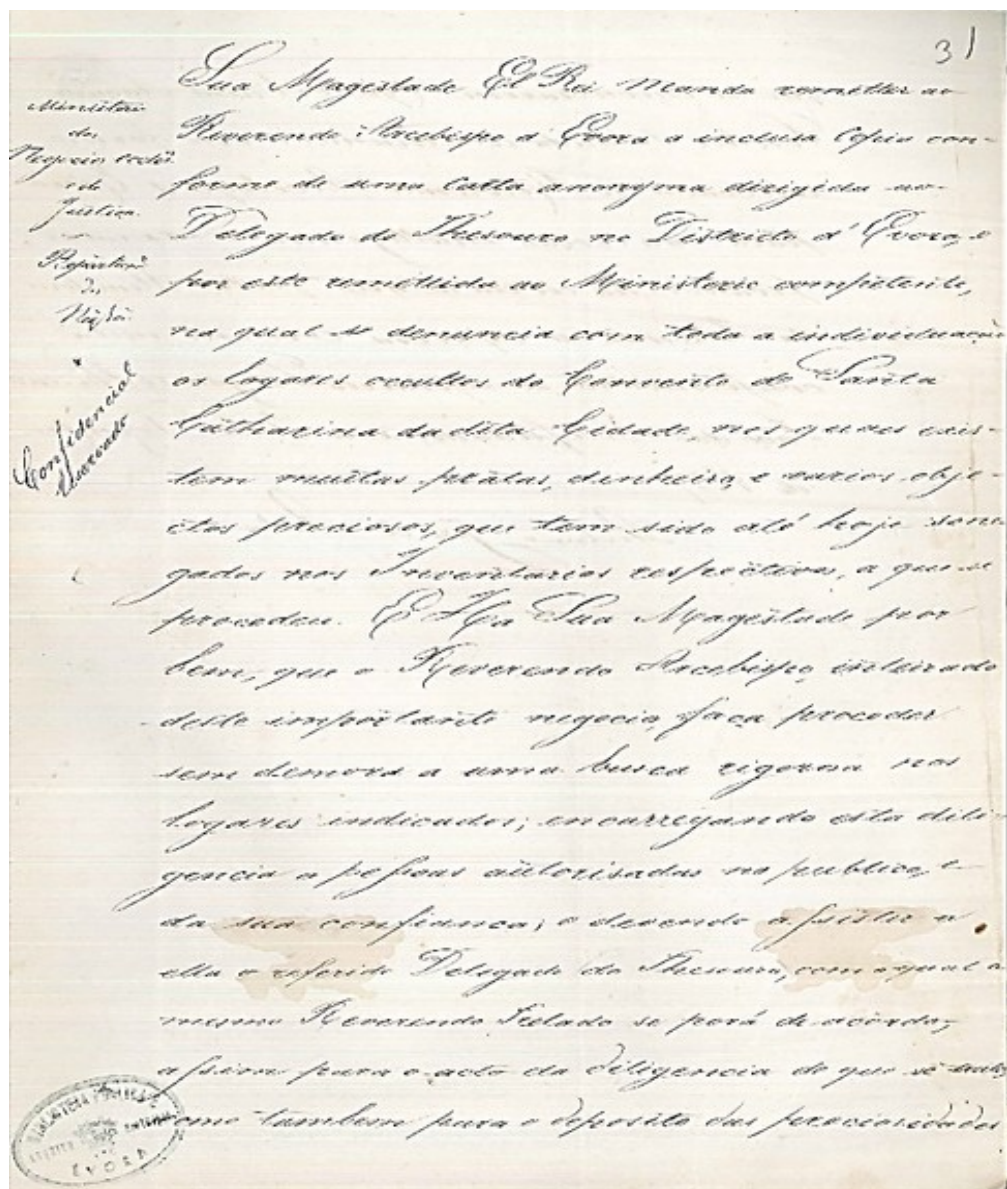 31
Ministerio
dos
Negocios eccles.
e de
Justiça.
Repartição
dos
Confidencial
Reservado
Sua Magestade El Rei Manda remetter ao
Reverendo Arcebispo d'Evora a inclusa Copia con-
forme de uma Carta anonyma dirigida ao
Delegado do Thesouro no Districto d'Evora, e
por este remettida ao Ministerio competente,
na qual se denuncia com toda a individuação
os logares occultos do Convento de Santa
Catharina da dita Cidade, nos quaes exis-
tem muitas pratas, dinheiro, e varios obje-
ctos preciosos, que tem sido até hoje sone
gados nos Inventarios respectivos, a que se
procedeu. E Ha Sua Magestade por
bem, que o Reverendo Arcebispo, inteirado
deste importante negocio, faça proceder
sem demora a uma busca rigorosa nos
logares indicados; encarregando esta dili-
gencia a pessoas autorisadas no publico, e
da sua confiança; e devendo assistir a
ella o referido Delegado do Thesouro, com o qual o
mesmo Reverendo Prelado se porá de acôrdo,
assim para o acto da diligencia de que se trata,
como tambem para o deposito das preciosidades
BIBLIOTECA PUBLICA
EVORA